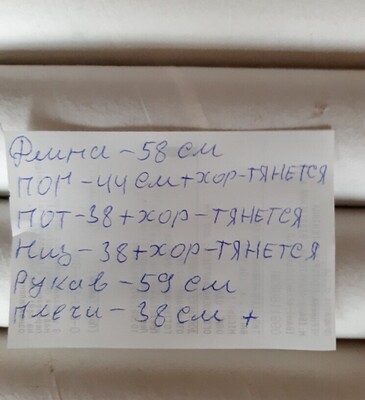 Длина - 58 см
ПОГ - 44 см + хор - тянется
ПОТ - 38 + хор - тянется
Низ - 38 + хор - тянется
Рукав - 59 см
Плечи - 38 см +